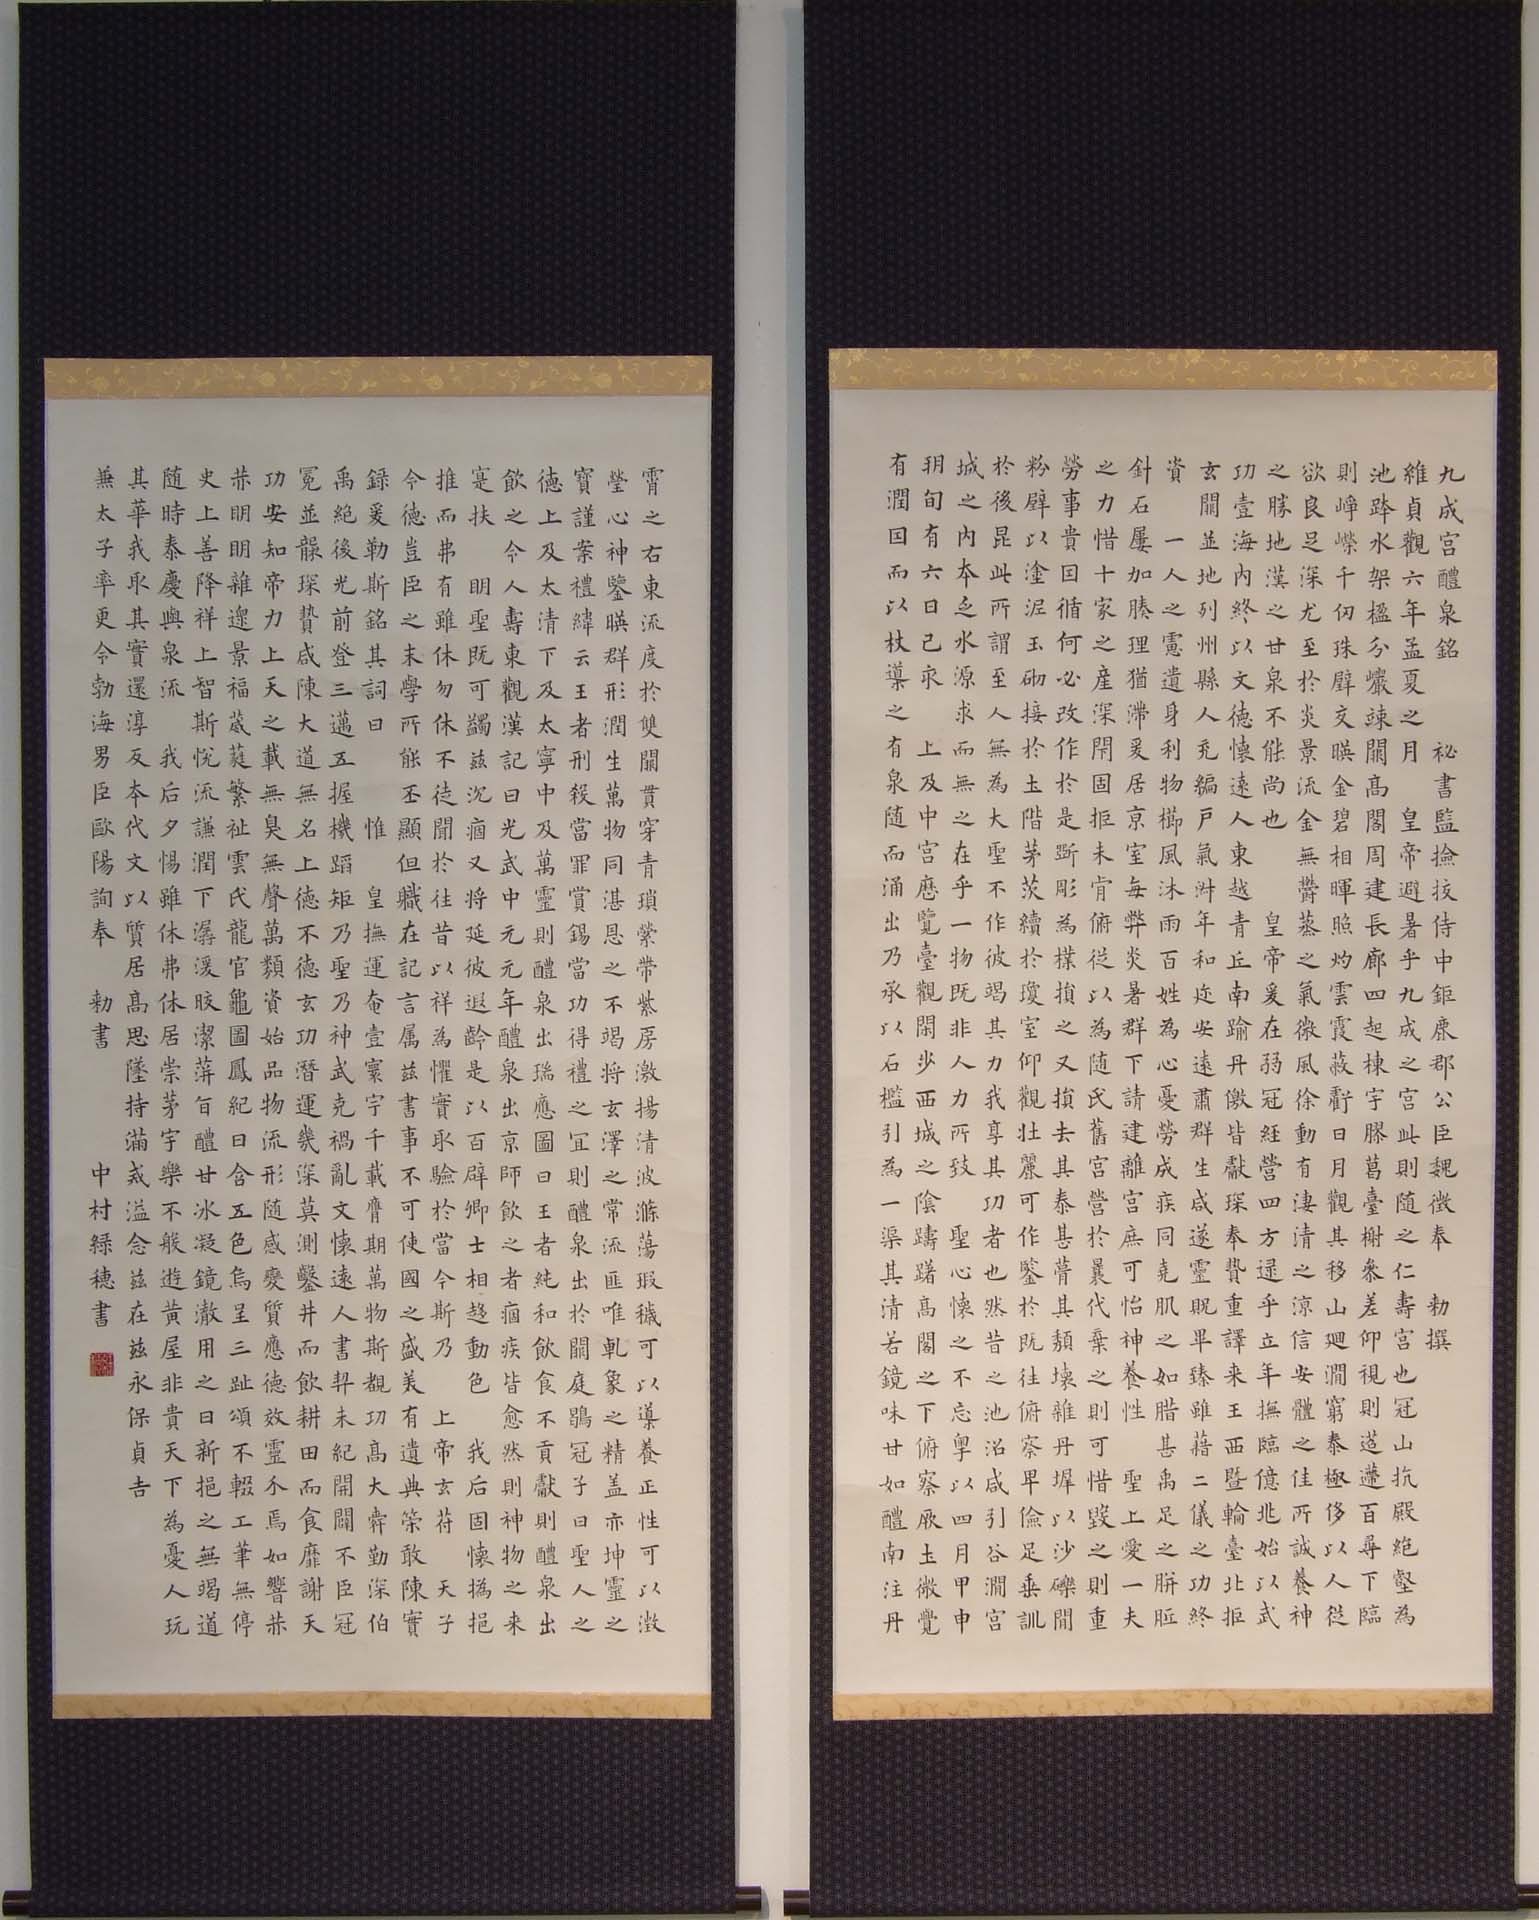 九成宮醴泉銘　祕書監撿挍侍中鉅鹿郡公臣魏徵奉　勅撰
維貞觀六年孟夏之月　皇帝避暑乎九成之宮此則随之仁壽宮也冠山抗殿絶壑為
池跨水架楹分巖竦闕髙閣周建長廊四起棟宇膠葛臺榭參差仰視則迢遰百尋下臨
則崢嶸千仞珠璧交暎金碧相暉照灼雲霞蔽虧日月觀其移山廻澗窮泰極侈以人從
欲良足深尤至於炎景流金無欝蒸之氣微風徐動有淒清之涼信安體之佳所誠養神
之勝地漢之甘泉不能尚也　皇帝爰在弱冠經營四方逮乎立年撫臨億兆始以武
功壹海内終以文德懷遠人東越青丘南踰丹儌皆獻琛奉贄重譯来王西曁輪臺北拒
玄闕並地列州縣人充編戸氣淑年和迩安遠肅群生咸遂靈貺畢臻雖藉二儀之功終
資　一人之慮遺身利物櫛風沐雨百姓為心憂勞成疾同堯肌之如腊甚禹足之胼胝
針石屢加腠理猶滯爰居京室每弊炎暑群下請建離宮庶可怡神養性　聖上愛一夫
之力惜十家之産深閇固拒未肯俯從以為随氏舊宮營於曩代棄之則可惜毀之則重
勞事貴因循何必改作於是斲彫為樸損之又損去其泰甚葺其頹壞雜丹墀以沙礫間
粉壁以塗泥玉砌接於土階茅茨續於瓊室仰觀壮麗可作鑒於既往俯察卑儉足垂訓
於後昆此所謂至人無為大聖不作彼竭其力我享其功者也然昔之池沼咸引谷澗宮
城之内本乏水源求而無之在乎一物既非人力所致　聖心懷之不忘粤以四月甲申
朔旬有六日己亥　上及中宮歷覽臺觀閑步西城之陰躊躇髙閣之下俯察厥土微覺
有潤因而以杖導之有泉随而涌出乃承以石檻引為一渠其清若鏡味甘如醴南注丹
霄之右東流度於雙闕貫穿青瑣縈帶紫房激揚清波滌蕩瑕穢可以導養正性可以澂
瑩心神鑒暎群形潤生萬物同湛恩之不竭将玄澤之常流匪唯乹象之精盖亦坤靈之
寳謹案禮緯云王者刑殺當罪賞錫當功得禮之冝則醴泉出於闕庭鶡冠子曰聖人之
德上及太清下及太寧中及萬靈則醴泉出瑞應圖曰王者純和飲食不貢獻則醴泉出
飲之令人壽東觀漢記曰光武中元元年醴泉出京師飲之者痼疾皆愈然則神物之来
寔扶　明聖既可蠲兹沉痼又将延彼遐齡是以百辟卿士相趍動色　我后固懷撝挹
推而弗有雖休勿休不徒聞於往昔以祥為懼實取驗於當今斯乃　上帝玄符　天子
令德豈臣之末學所能丕顯但職在記言属兹書事不可使國之盛美有遺典策敢陳實
録爰勒斯銘其詞曰　惟　皇撫運奄壹寰宇千載膺期萬物斯覩功髙大舜勤深伯
禹絶後光前登三邁五握機蹈矩乃聖乃神武克禍亂文懷遠人書契未紀開闢不臣冠
冕並襲琛贄咸陳大道無名上德不德玄功潛運幾深莫測鑿井而飲耕田而食靡謝天
功安知帝力上天之載無臭無聲萬類資始品物流形随感變質應德效靈介焉如響赫
赫明明雜遝景福葳蕤繁祉雲氏龍官龜圖鳳紀日含五色烏呈三趾頌不輟工筆無停
史上善降祥上智斯悅流謙潤下潺湲晈潔蓱旨醴甘冰凝鏡澈用之日新挹之無竭道
随時泰慶與泉流　我后夕惕雖休弗休居崇茅宇樂不般遊黄屋非貴天下為憂人玩
其華我取其實還淳反本代文以質居髙思墜持滿戒溢念兹在兹永保貞吉
兼太子率更令勃海男臣歐陽詢奉　勅書　中村緑穂書